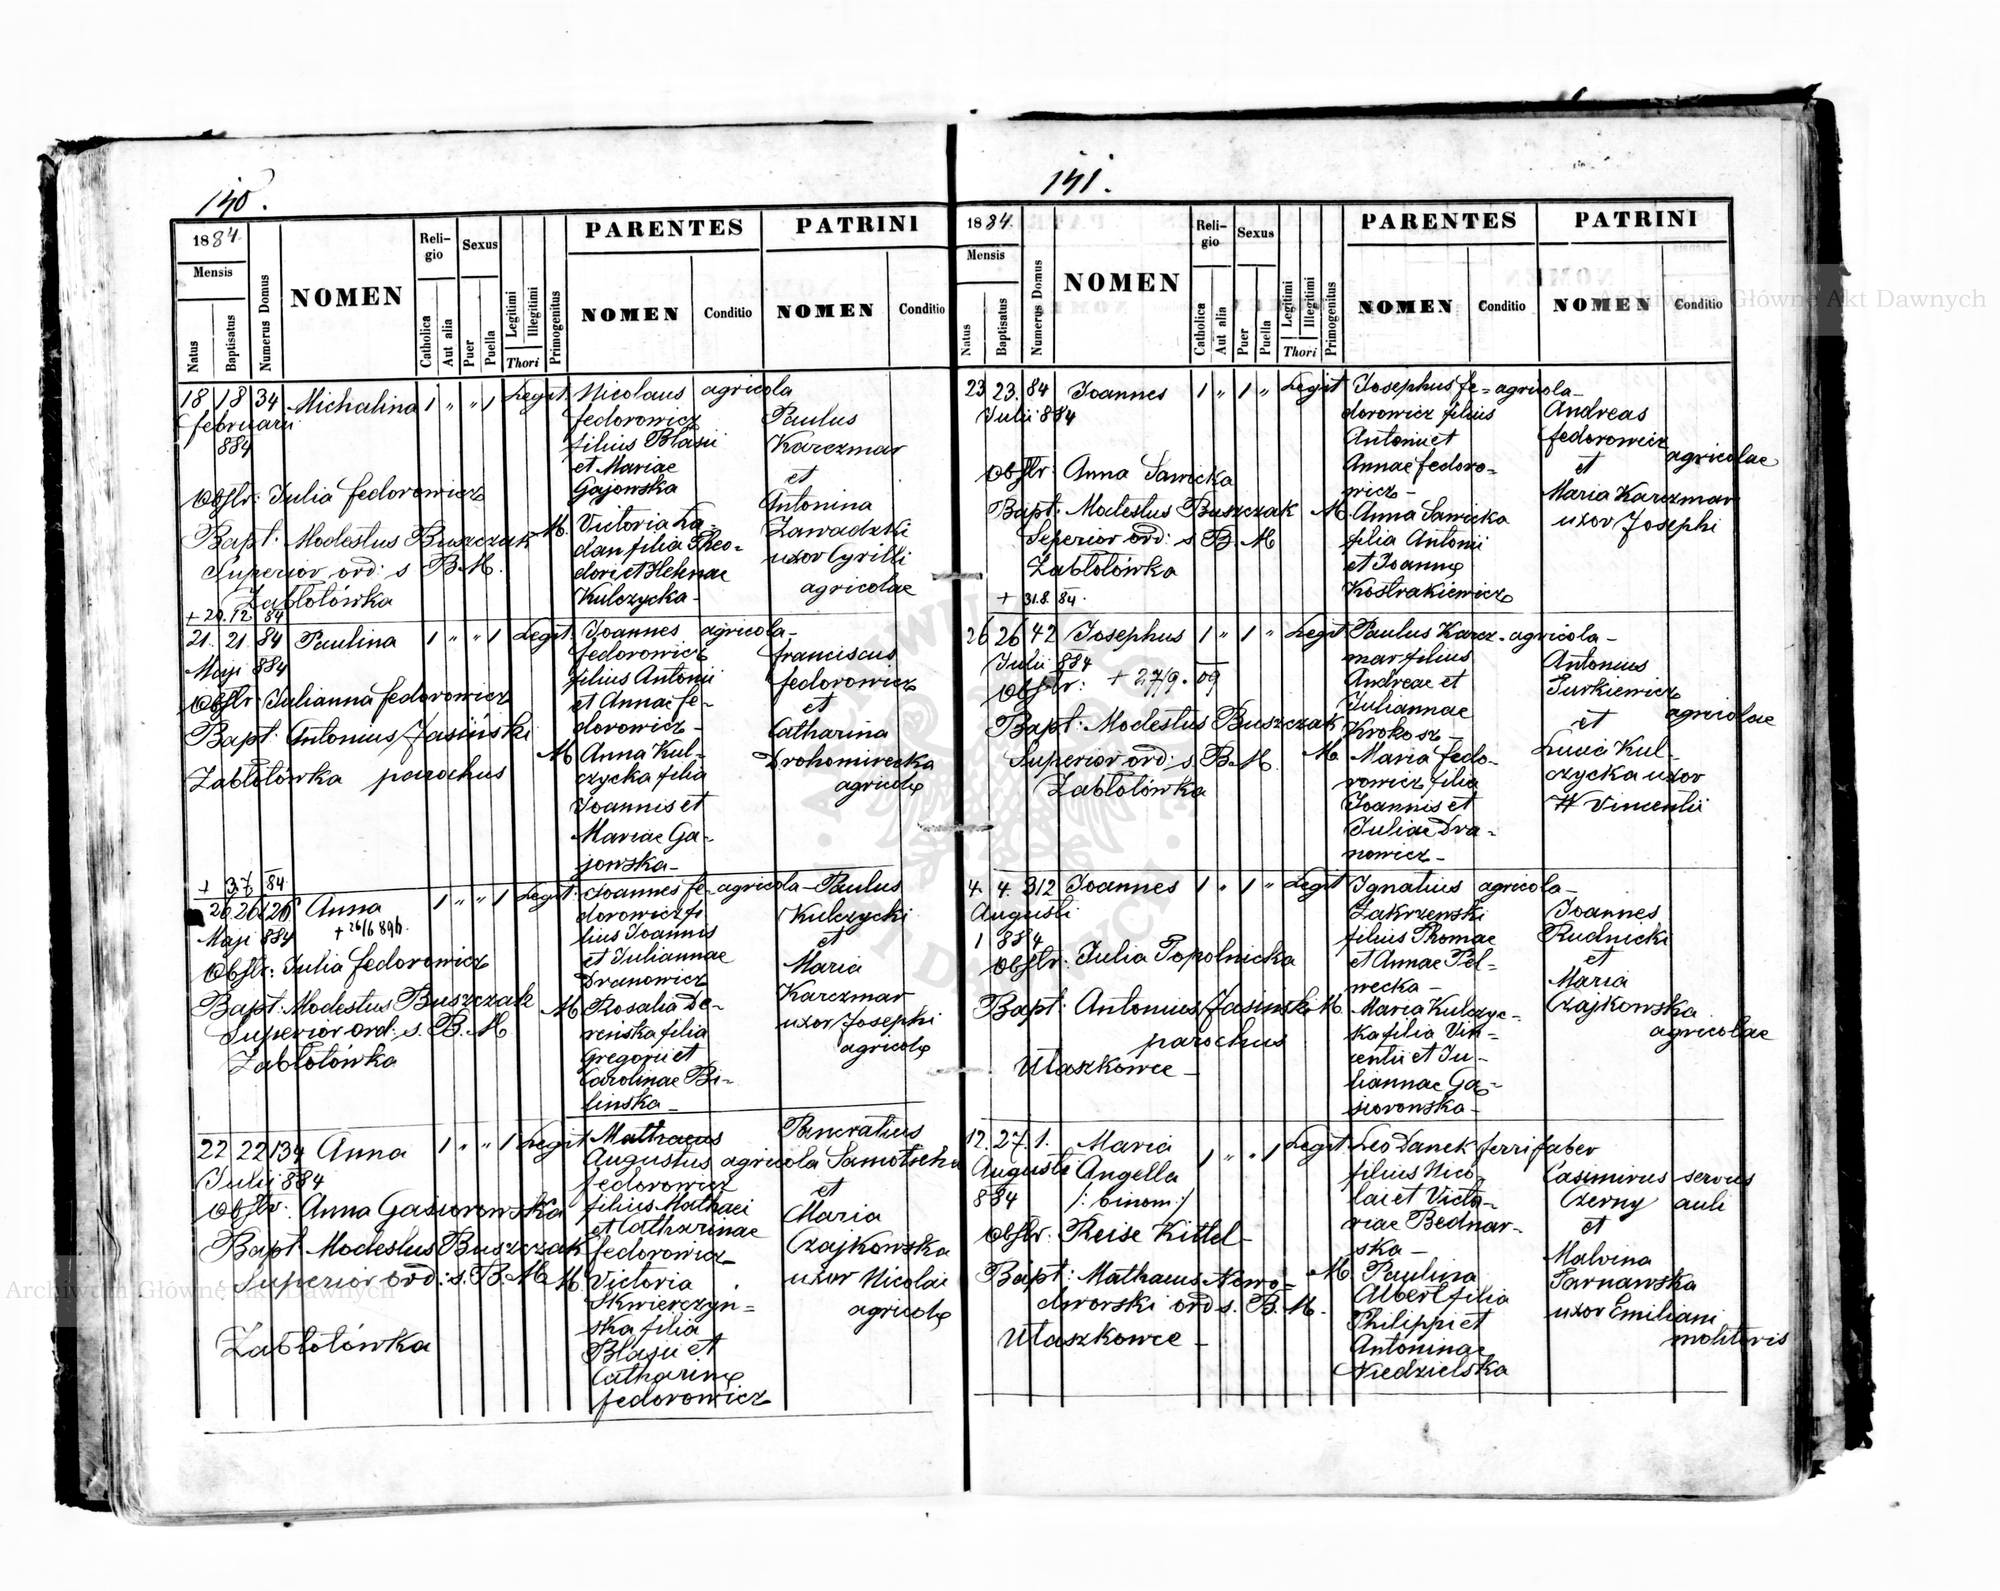 140.
1884.
Mensis
Natus
Baptisatus
Numerus Domus
NOMEN
Reli-
gio
Catholica
Aut alia
Sexus
Puer
Puella
Legitimi
Illegitimi
Thori
Primogenitus
PARENTES
NOMEN
Conditio
PATRINI
NOMEN
Conditio
18 18 34 Michalina 1 " " 1 Legit. Nicolaus agricola
februarii
884
fedorowicz
filius Blasii
et Mariae
Gajowska
Paulus
Karczmar
et
Antonina
Zawadzki
uxor Cyrilli
agricolae
Obstr: Julia fedorowicz
Bapt: Modestus Buszczak
Superior ord: s B.M.
Zabłotówka
M. Victoria La-
dan filia Theo-
dori et Helenae
Kulczycka-
+ 20. 12. 84
21. 21. 84 Paulina 1 " " 1 Legit: Joannes agricola-
Maji 884
fedorowicz
filius Antonii
et Annae fe-
dorowicz-
franciscus
fedorowicz
et
Catharina
Drohomirecka
agricolæ
Obstr: Julianna fedorowicz
Bapt: Antonius Jasiński
Zabłotówka parochus
M. Anna Kul-
czycka filia
Joannis et
Mariae Ga-
jowska-
+ 3.7. 84
26 26 126 Anna 1 " " 1 Legit: Joannes fe- agricola- Paulus
Maji 884
+ 26/6 896.
dorowicz fi
lius Joannis
et Juliannae
Dranowicz
Kulczycki
et
Maria
Karczmar
uxor Josephi
agricolæ
Obstr: Julia fedorowicz
Bapt: Modestus Buszczak
Superior ord: s. B. M
Zabłotówka
M. Rosalia De-
reńska filia
Gregorii et
Carolinae Bi-
linska-
22 22 134 Anna 1 " " 1 Legit Mathaeus
Julii 884
Augustus agricola
fedorowicz
filius Mathaei
et Catharinae
fedorowicz-
Pancratius
Samotscha
et
Maria
Czajkowska
uxor Nicolai
agricolæ
Obstr: Anna Gasiorowska
Bapt: Modestus Buszczak
Superior ord: s. B. M
Zabłotówka
M. Victoria
Skwierczyn=
ska filia
Blasii et
Catharinæ
fedorowicz
141.
1884.
Mensis
Natus
Baptisatus
Numerus Domus
NOMEN
Reli-
gio
Catholica
Aut alia
Sexus
Puer
Puella
Legitimi
Illegitimi
Thori
Primogenitus
PARENTES
NOMEN
Conditio
PATRINI
NOMEN
Conditio
23 23. 84 Joannes 1 " 1 " Legit Josephus fe= agricola-
Julii 884
dorowicz filius
Antonii et
Annae fedoro-
wicz-
Andreas
fedorowicz
et
agricolae
Maria Karczmar
uxor Josephi
Obstr: Anna Sawicka
Bapt: Modestus Buszczak
Seperior ord: s B. M
Zabłotówka
M. Anna Sawicka
filia Antonii
et Joannæ
Kostrakiewicz
+ 31.8. 84.
26 26 42 Josephus 1 " 1 " Legit Paulus Karcz- agricola-
Julii 884
+ 27/9. 09
mar filius
Andreae et
Juliannae
Krokosz-
Antonius
Turkiewicz
et
agricolae
Lucia Kul-
czycka uxor
Vincentii
Obstr:
Bapt: Modestus Buszczak
Superior ord: s. B. M.
Zabłotówka
M. Maria fedo-
rowicz filia
Joannis et
Juliae Dra-
nowicz-
4. 4. 312 Joannes 1 " 1 " Legit Ignatius agricola-
Augusti
1 884
Zakrzenski
filius Thomae
et Annae Pel-
wecka-
Joannes
Rudnicki
et
Maria
Czajkowska
agricolae
Obstr: Julia Topolnicka
Bapt: Antonius Jasinski
parochus
Ułaszkowce-
M. Maria Kulczyc-
ka filia Vin-
centii et Ju-
liannae Ga-
siorowska-
12. 27. 1. Maria 1 " " 1 Legit Leo Danek ferrifaber
Augusti
884
Angella
/: binom:/
filius Nico
lai et Victo-
riae Bednar-
ska-
Casimirus servus
Czerny auli
et
Malvina
Tarnawska
uxor Emiliani
molitoris
Obstr: Reise Kittel-
Bapt: Mathaeus Nowo=
dworski ord s. B. M.
Ułaszkowce-
M Paulina
Albert filia
Philippi et
Antoninae
Niedzielska
Archiwum Główne Akt Dawnych
Archiwum Główne Akt Dawnych